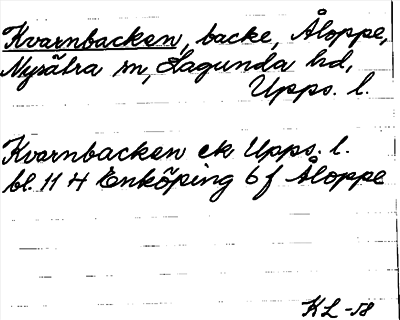 Kvarnbacken, backe, Åloppe,
Nysätra sn, Lagunda hd,
Upps. l.
Kvarnbacken ek Upps. l.
bl. 11 H Enköping 6 f Åloppe
KL -58